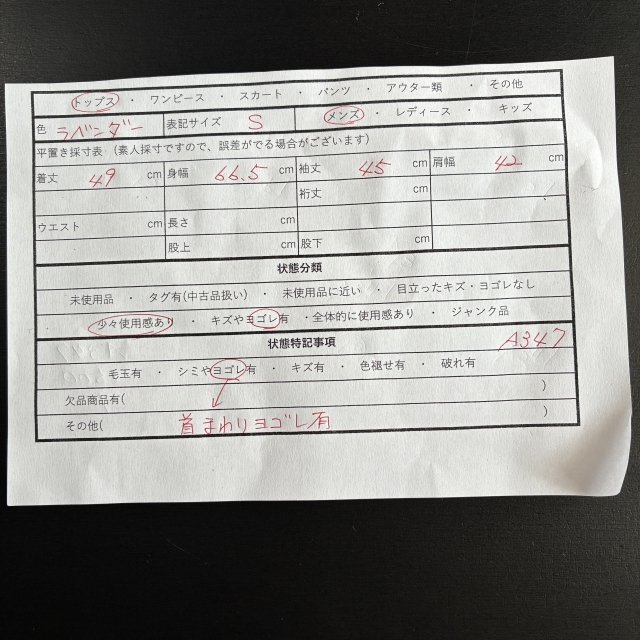 トップス ・ ワンピース ・ スカート ・ パンツ ・ アウター類 ・ その他
色 ラベンダー 表記サイズ S メンズ ・ レディース ・ キッズ
平置き採寸表 (素人採寸ですので、誤差がでる場合がございます)
着丈 49 cm 身幅 66.5 cm 袖丈 45 cm 肩幅 42 cm
裄丈 cm
ウエスト cm 長さ cm
股上 cm 股下 cm
状態分類
未使用品 ・ タグ有(中古品扱い) ・ 未使用品に近い ・ 目立ったキズ・ヨゴレなし
少々使用感あり ・ キズやヨゴレ有 ・全体的に使用感あり ・ ジャンク品
状態特記事項 A347
毛玉有 ・ シミやヨゴレ有 ・ キズ有 ・ 色褪せ有 ・ 破れ有
欠品商品有( )
その他( 首まわりヨゴレ有 )